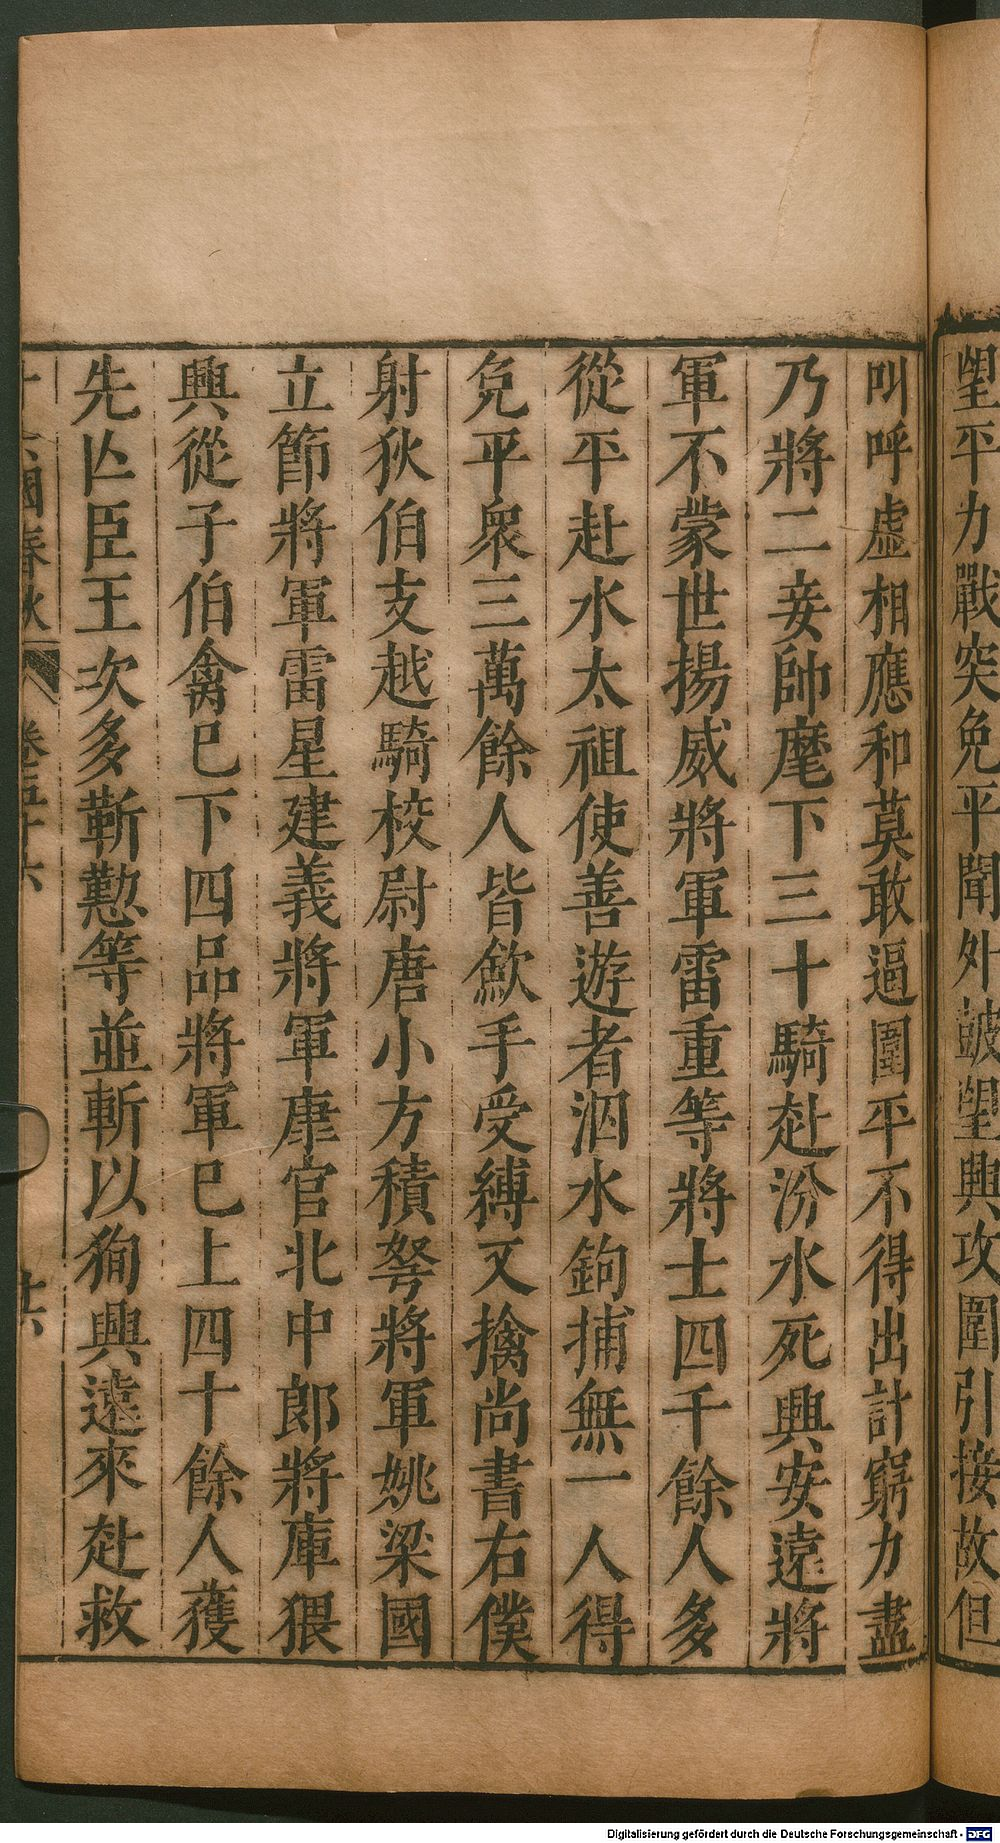 望平力戰突免平聞外鼓望興攻圍引接故但
叫呼虛相應和莫敢逼圍平不得出計窮力盡
乃將二妾帥麾下三十騎赴汾水死興安遠將
軍不蒙世揚威將軍雷重等將士四千餘人多
從平赴水太祖使善遊者泅水鉤捕無一人得
免平衆三萬餘人皆歛手受縛又擒尚書右僕
射狄伯支越騎校尉唐小方積弩將軍姚梁國
立節將軍雷星建義將軍康官北中郎將庫猥
興從子伯禽巳下四品將軍巳上四十餘人獲
先亾臣王次多靳懃等並斬以狥興遠來赴救
國春秋 卷五十六 廿六
Digitalisierung gefördert durch die Deutsche Forschungsgemeinschaft - DFG